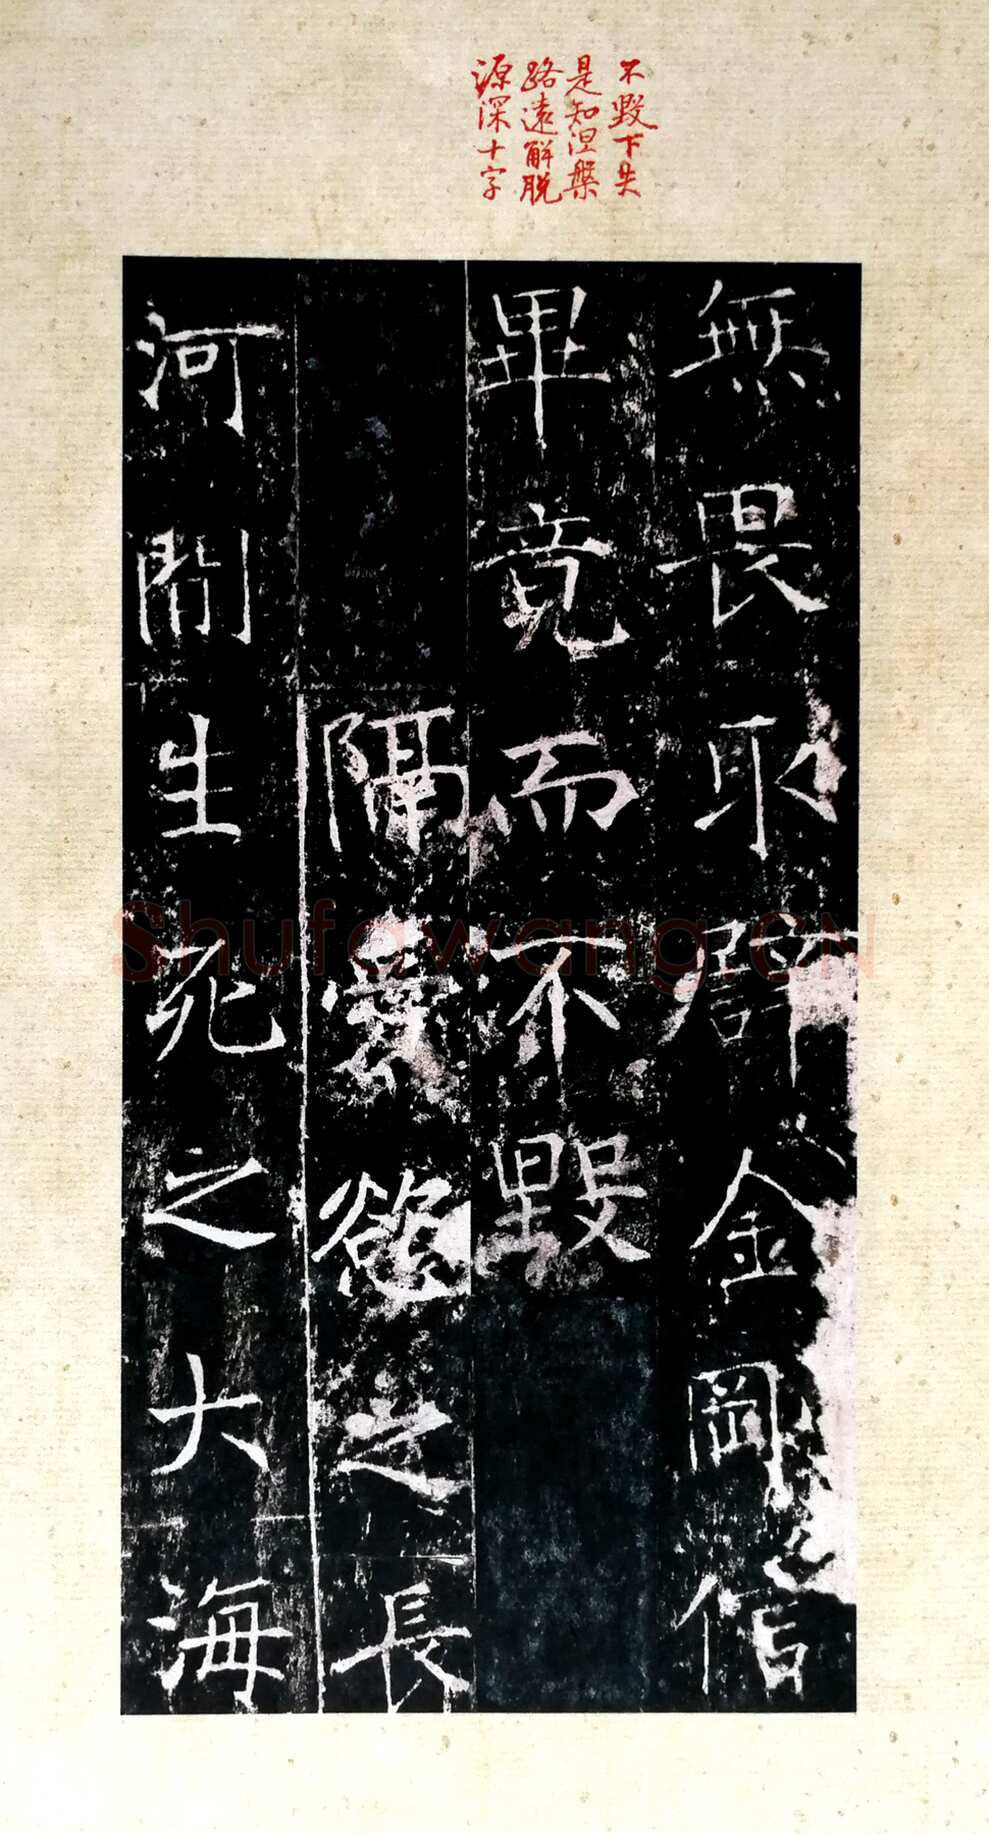 不毀下失
是知涅槃
路遠解脱
源深十字
無畏取辟金剛信
畢竟而不毀
隔愛慾之長
河間生死之大海
Shufawang.CN